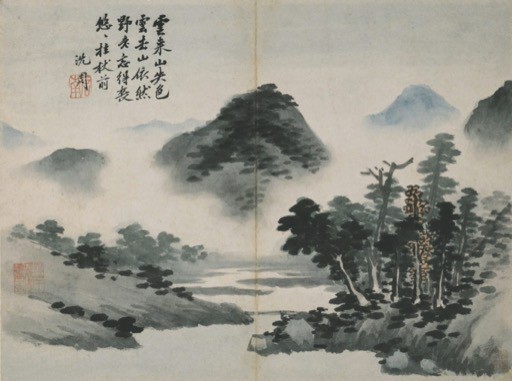 雲來山失色
雲去山依然
野老忘得喪
悠〻拄杖前